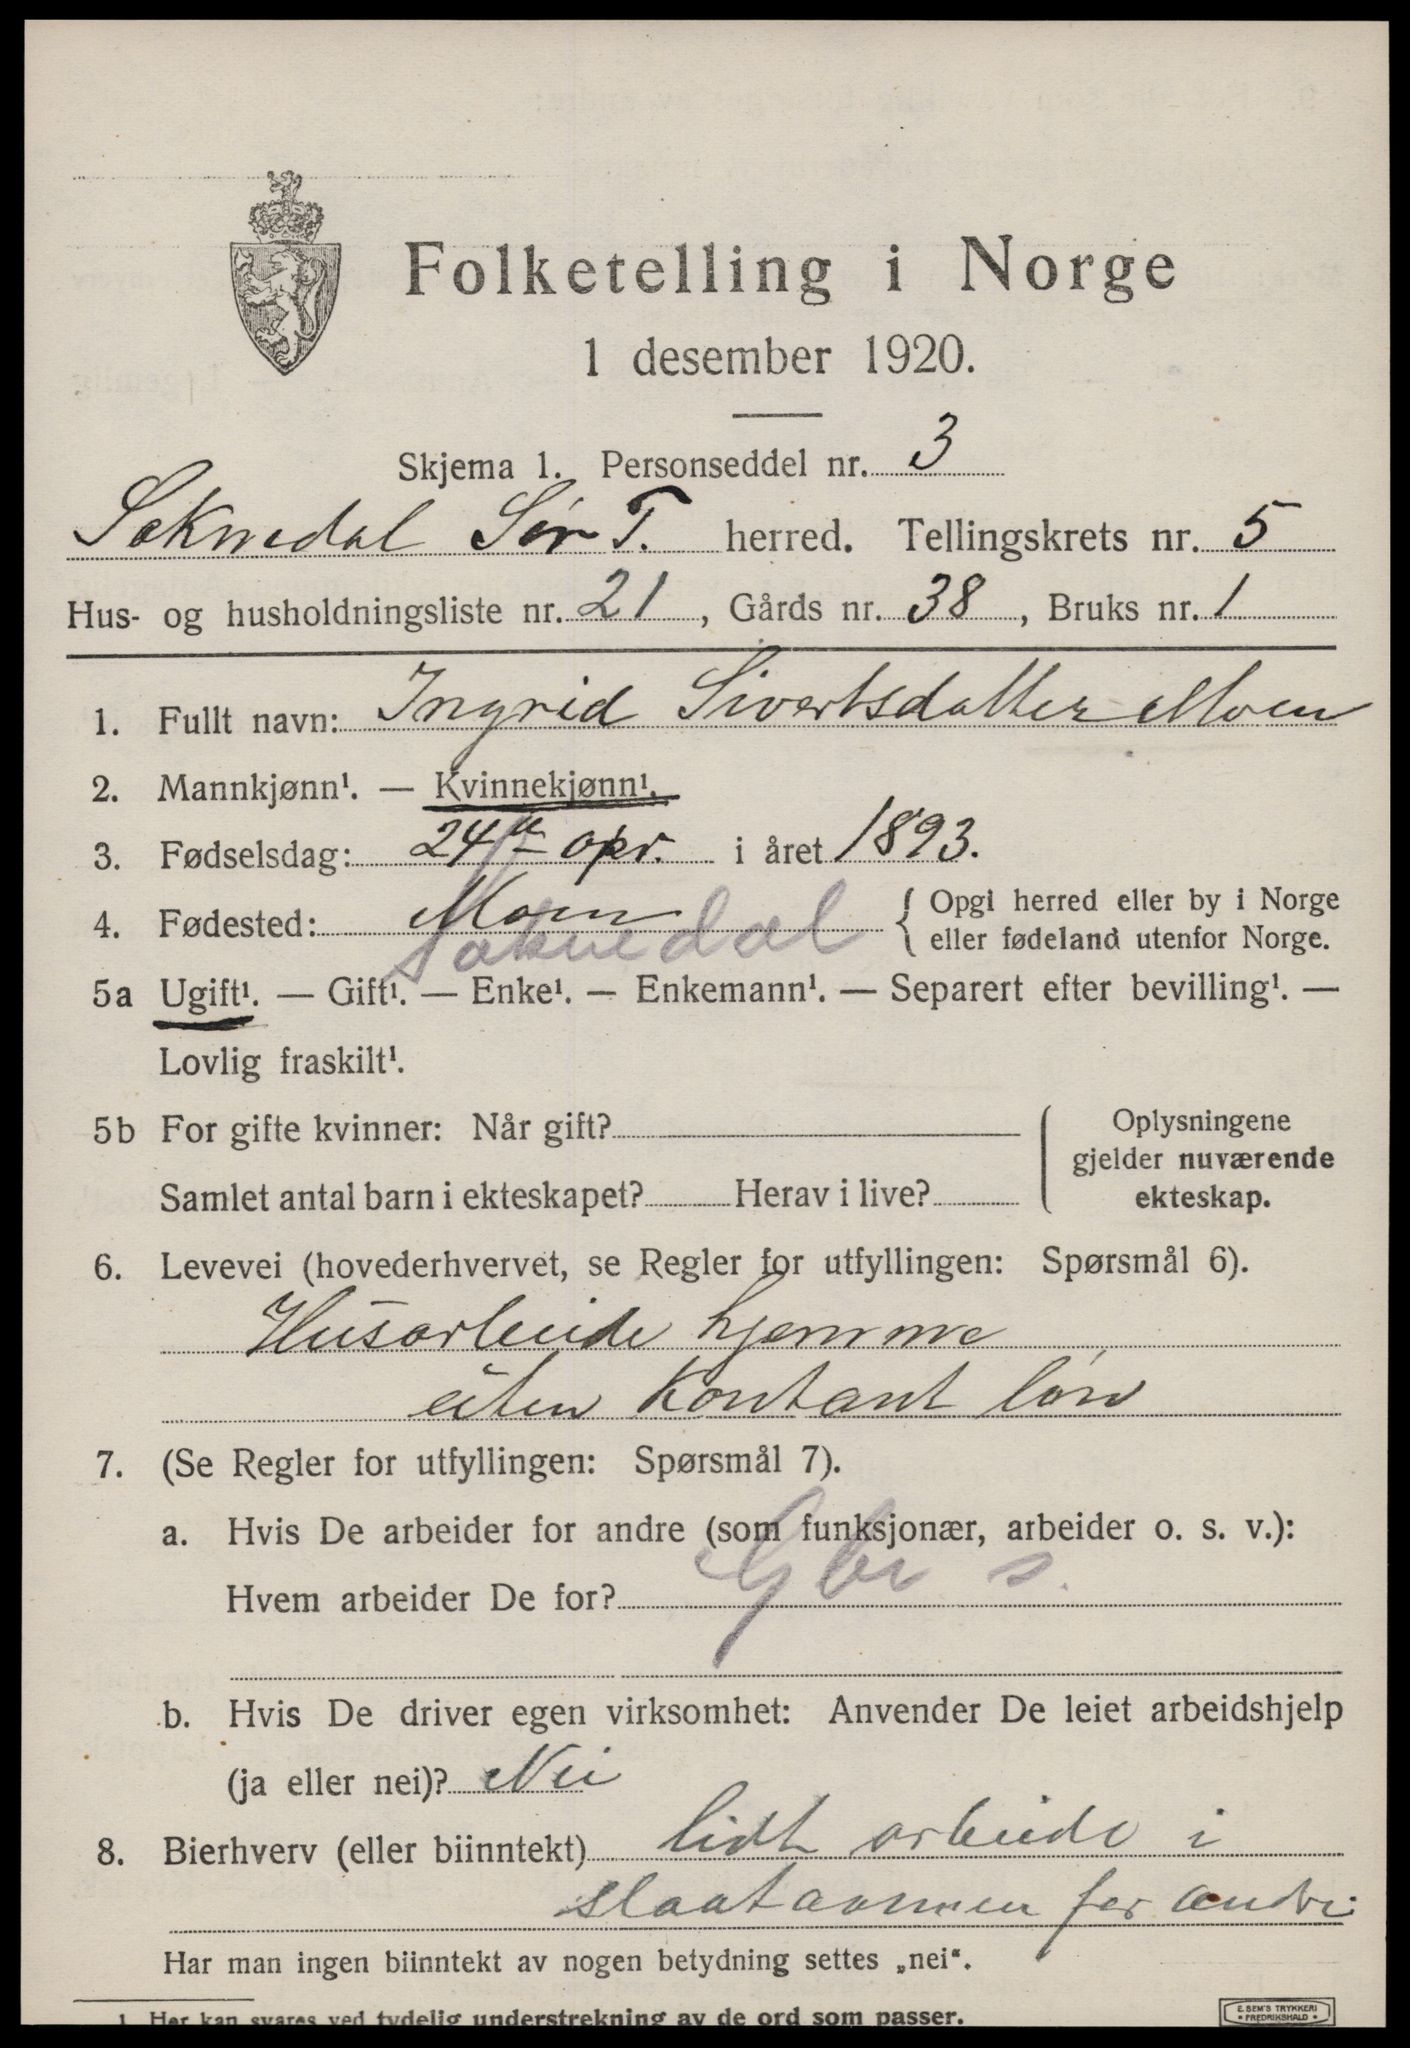 Folketelling i Norge
1 desember 1920.
Skjema 1. Personseddel nr. 3
Soknedal Sør T. herred. Tellingskrets nr. 5
Hus- og husholdningsliste nr. 21, Gårds nr. 38, Bruks nr. 1
1. Fullt navn: Ingrid Sivertsdatter Moen
2. Mannkjønn¹. — Kvinnekjønn¹.
3. Fødselsdag: 24de apr. i året 1893.
4. Fødested: Moen { Opgi herred eller by i Norge
eller fødeland utenfor Norge.
Soknedal
5a Ugift¹. — Gift¹. — Enke¹. — Enkemann¹. — Separert efter bevilling¹. —
Lovlig fraskilt¹.
5b For gifte kvinner: Når gift?
Samlet antal barn i ekteskapet? Herav i live?
Oplysningene
gjelder nuværende
ekteskap.
6. Levevei (hovederhvervet, se Regler for utfyllingen: Spørsmål 6).
Husarbeide hjemme
uten kontant løn
7. (Se Regler for utfyllingen: Spørsmål 7).
a. Hvis De arbeider for andre (som funksjonær, arbeider o. s. v.):
Hvem arbeider De for? Gbr s.
b. Hvis De driver egen virksomhet: Anvender De leiet arbeidshjelp
(ja eller nei)? Nei
8. Bierhverv (eller biinntekt) lidt arbeide i
slaataannen for andre
Har man ingen biinntekt av nogen betydning settes „nei“.
1. Her kan svares ved tydelig understrekning av de ord som passer.
E. SEM'S TRYKKERI
FREDRIKSHALD